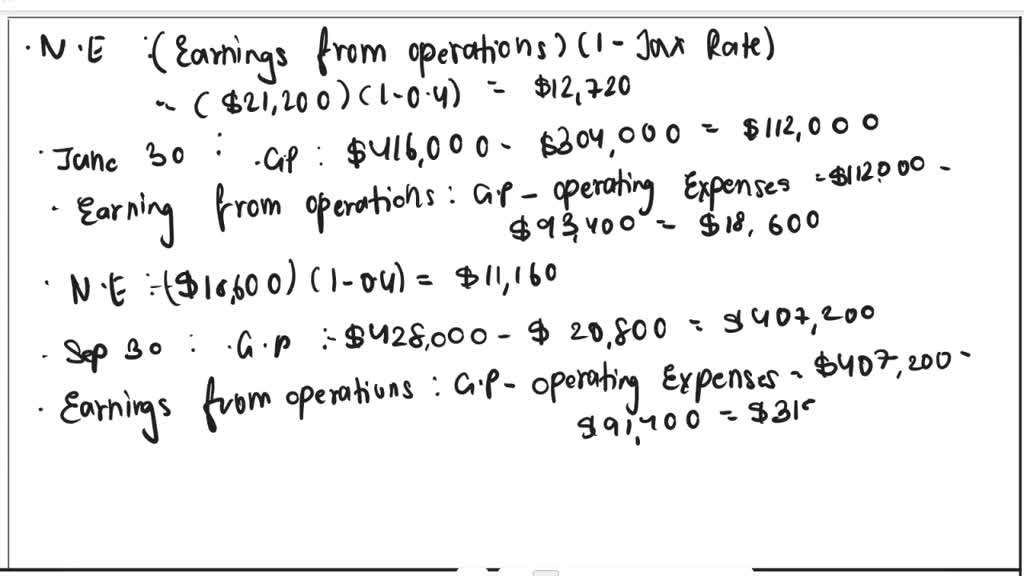 · N.E :(Earnings from operations)(1-Tax Rate)
~ ($21,200)(1-0.4) = $12,720
· June 30 : .GP : $416,000 - $304,000 = $112,000
· Earning from operations : G.P - operating Expenses = $112,000 -
$93,400 = $18,600
· N.E :-($18,600)(1-04) = $11,160
· Sep 30 : .G.P :- $428,000 - $ 20,800 = $407,200
· Earnings from operations : G.P - operating Expenses = $407,200 -
$91,400 = $31